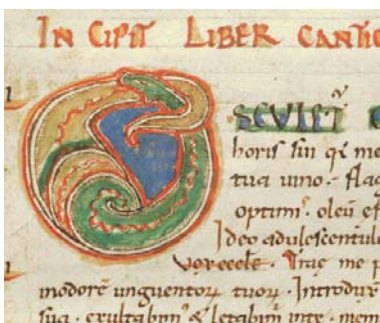 IN CIPIT LIBER CANTIC
OSCULET
horis sui qi me
tua uino.
optimis. oleū ef
Ideo adulescentule
vox eccle. Trae me p
modorē unguentoꝝ tuoꝝ. Introdux
sua. exultabim⁹ & letabim